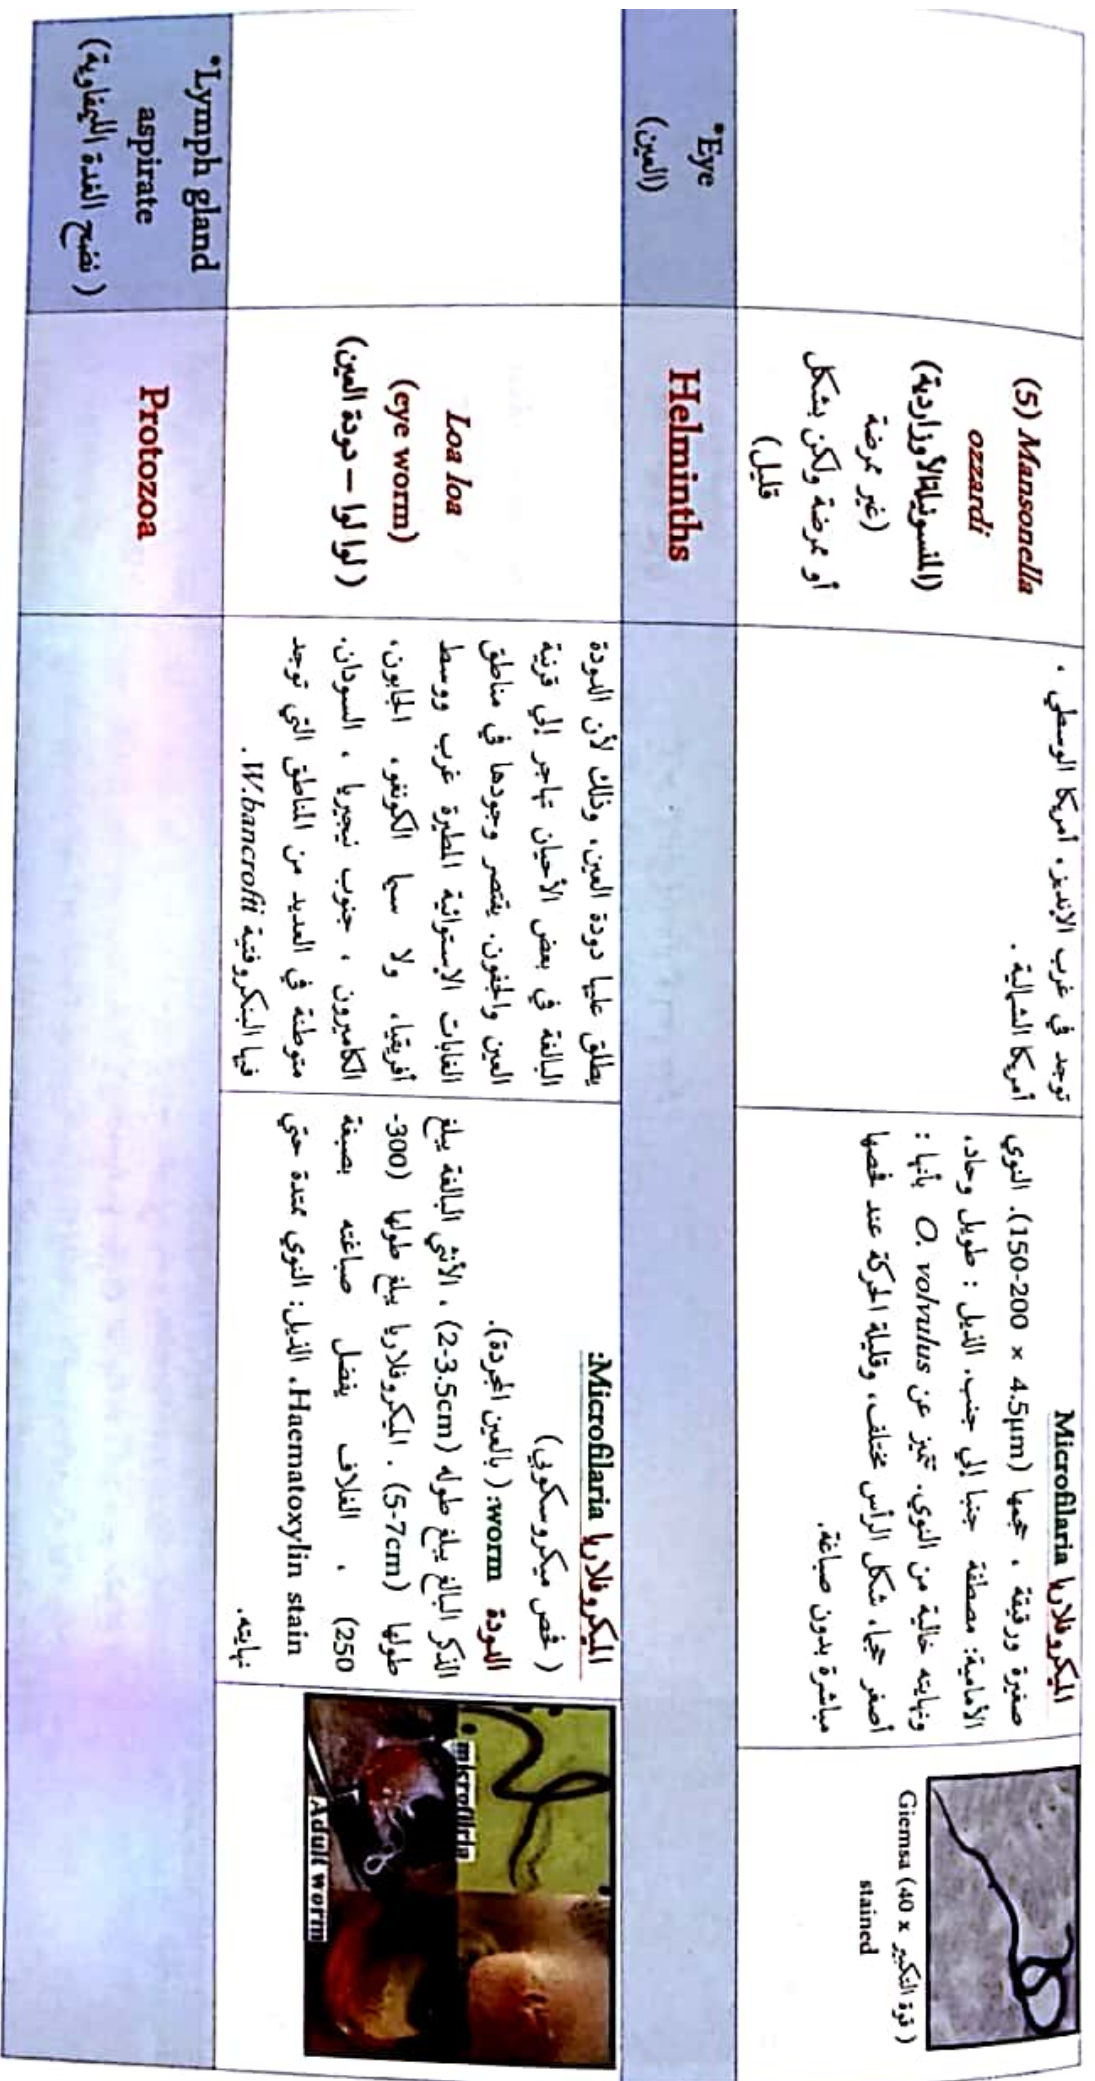 (5) Mansonella
ozzardi
(المنسونيلةالأوزاردية)
(غير ممرضة
أو ممرضة ولكن بشكل
قليل)
توجد في غرب الانديز، أمريكا الوسطي ،
أمريكا الشمالية .
الميكروفلاريا Microfilaria
صغيرة ورقيقة ، حجمها (150-200 × 4.5µm). النوي
الأمامية: مصطفة جنبا إلي جنب. الذيل : طويل وحاد،
ونهايته خالية من النوي. تتميز عن O. volvulus بأنها :
أصغر حجما، شكل الرأس مختلف، وقليلة الحركة عند فحصها
مباشرة بدون صباغة.
( قوة التكبير x 40) Giemsa
stained
*Eye
(العين)
Helminths
Loa loa
(eye worm)
( لوا لوا – دودة العين)
يطلق عليها دودة العين، وذلك لأن الدودة
البالغة في بعض الأحيان تهاجر إلي قرنية
العين والجفون. يقتصر وجودها في مناطق
الغابات الإستوائية المطيرة غرب ووسط
أفريقيا، ولا سيما الكونغو، الجابون،
الكاميرون ، جنوب نيجيريا ، السودان.
متوطنة في العديد من المناطق التي توجد
فيها البنكروفتية W.bancrofti .
الميكروفلاريا Microfilaria:
( فحص ميكروسكوبي)
الدودة worm: ( بالعين المجردة).
الذكر البالغ يبلغ طوله (2-3.5cm) ، الأنثي البالغة يبلغ
طولها (5-7cm) . الميكروفلاريا يبلغ طولها (300-
250) . الغلاف يفضل صباغته بصبغة
Haematoxylin stain. الذيل: النوي ممتدة حتي
نهايته.
microfilria
Adult worm
*Lymph gland
aspirate
( نضح الغدة الليمفاوية)
Protozoa